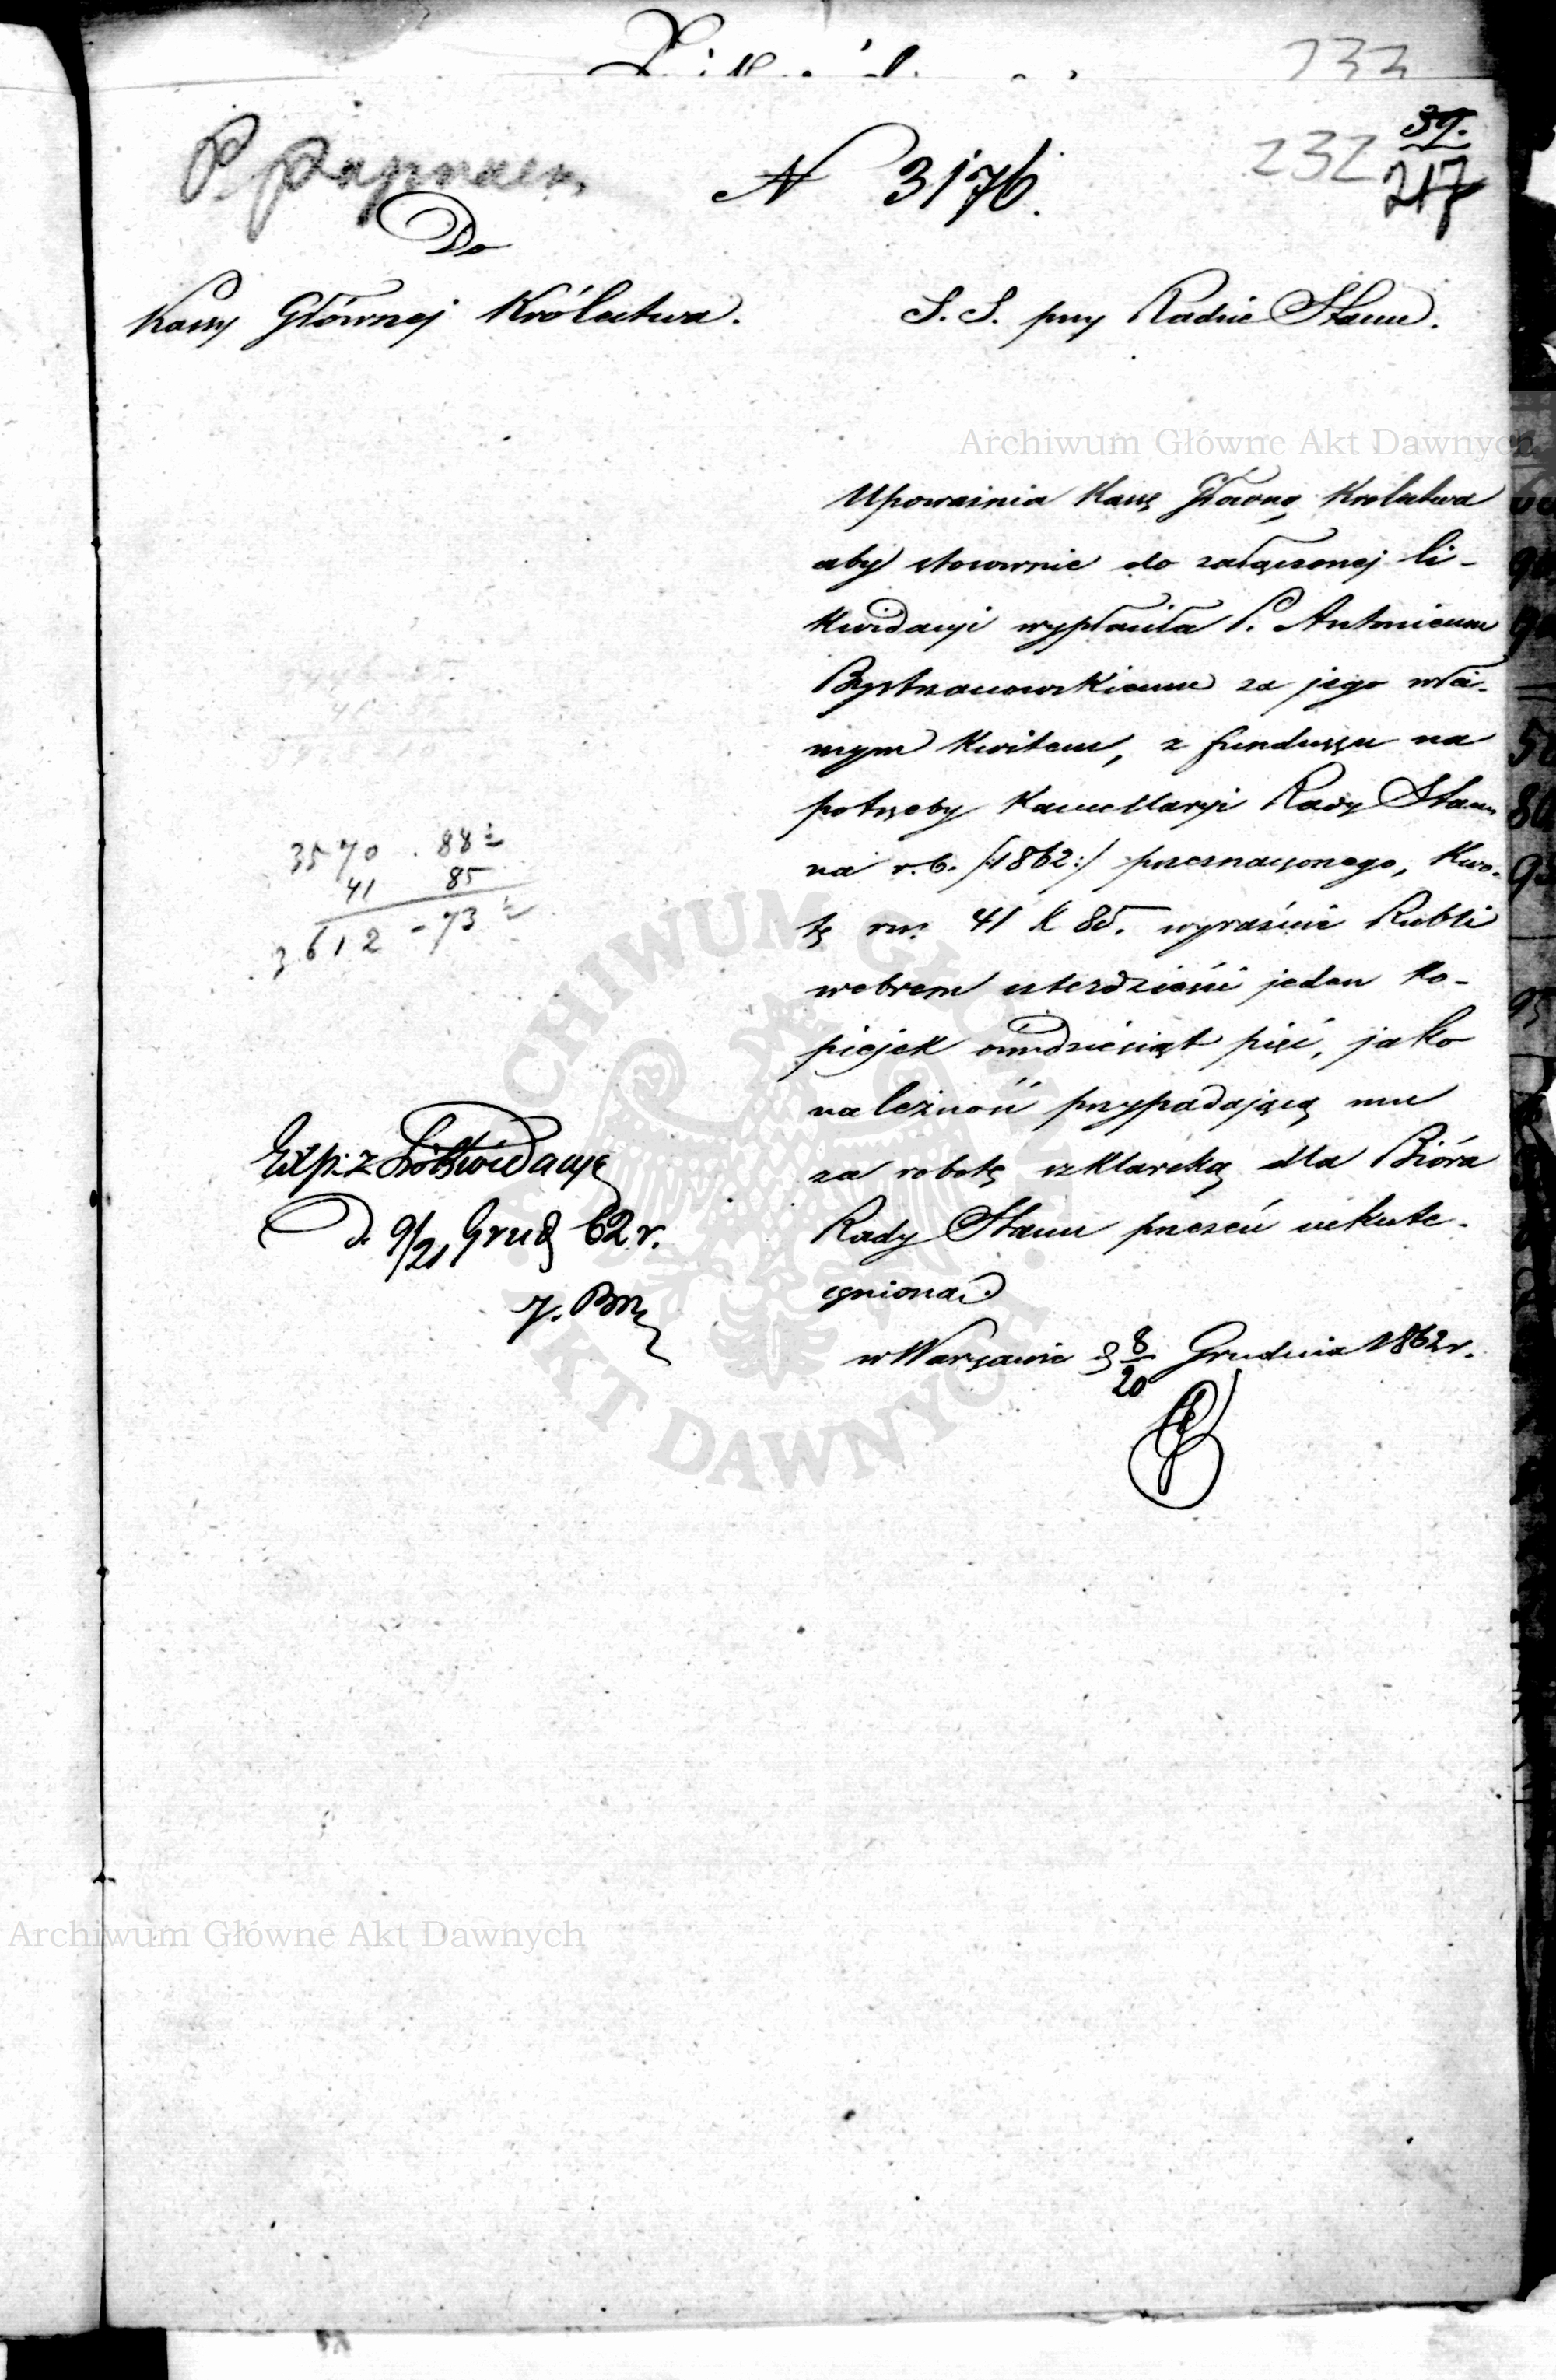 232
39.
217
N 3176.
Do
Kassy Głównej Królestwa.
S. S. przy Radzie Stanu.
Archiwum Główne Akt Dawnych
Upoważnia Kassę Główną Królestwa
aby stosownie do załączonej li-
kwidacyi wypłaciła P. Antoniemu
Bystrzanowskiemu za jego wła-
snym kwitem, z funduszu na
potrzeby Kancellaryi Rady Stanu
na r. b. /:1862:/ przeznaczonego, kwo-
tę rsr. 41 k 85. wyraźnie Rubli
srebrem czterdzieści jeden ko-
piejek ośmdziesiąt pięć, jako
należność przypadającą mu
za robotę szklarską dla Bióra
Rady Stanu przezeń uskute-
cznioną.
w Warszawie d 8/20 Grudnia 1862 r.
3570 . 88 ½
41 85
3612 - 73 ½
Exp: z Likwidacyą
D. 9/21 Grud 62 r.
ARCHIWUM GŁÓWNE AKT DAWNYCH
Archiwum Główne Akt Dawnych